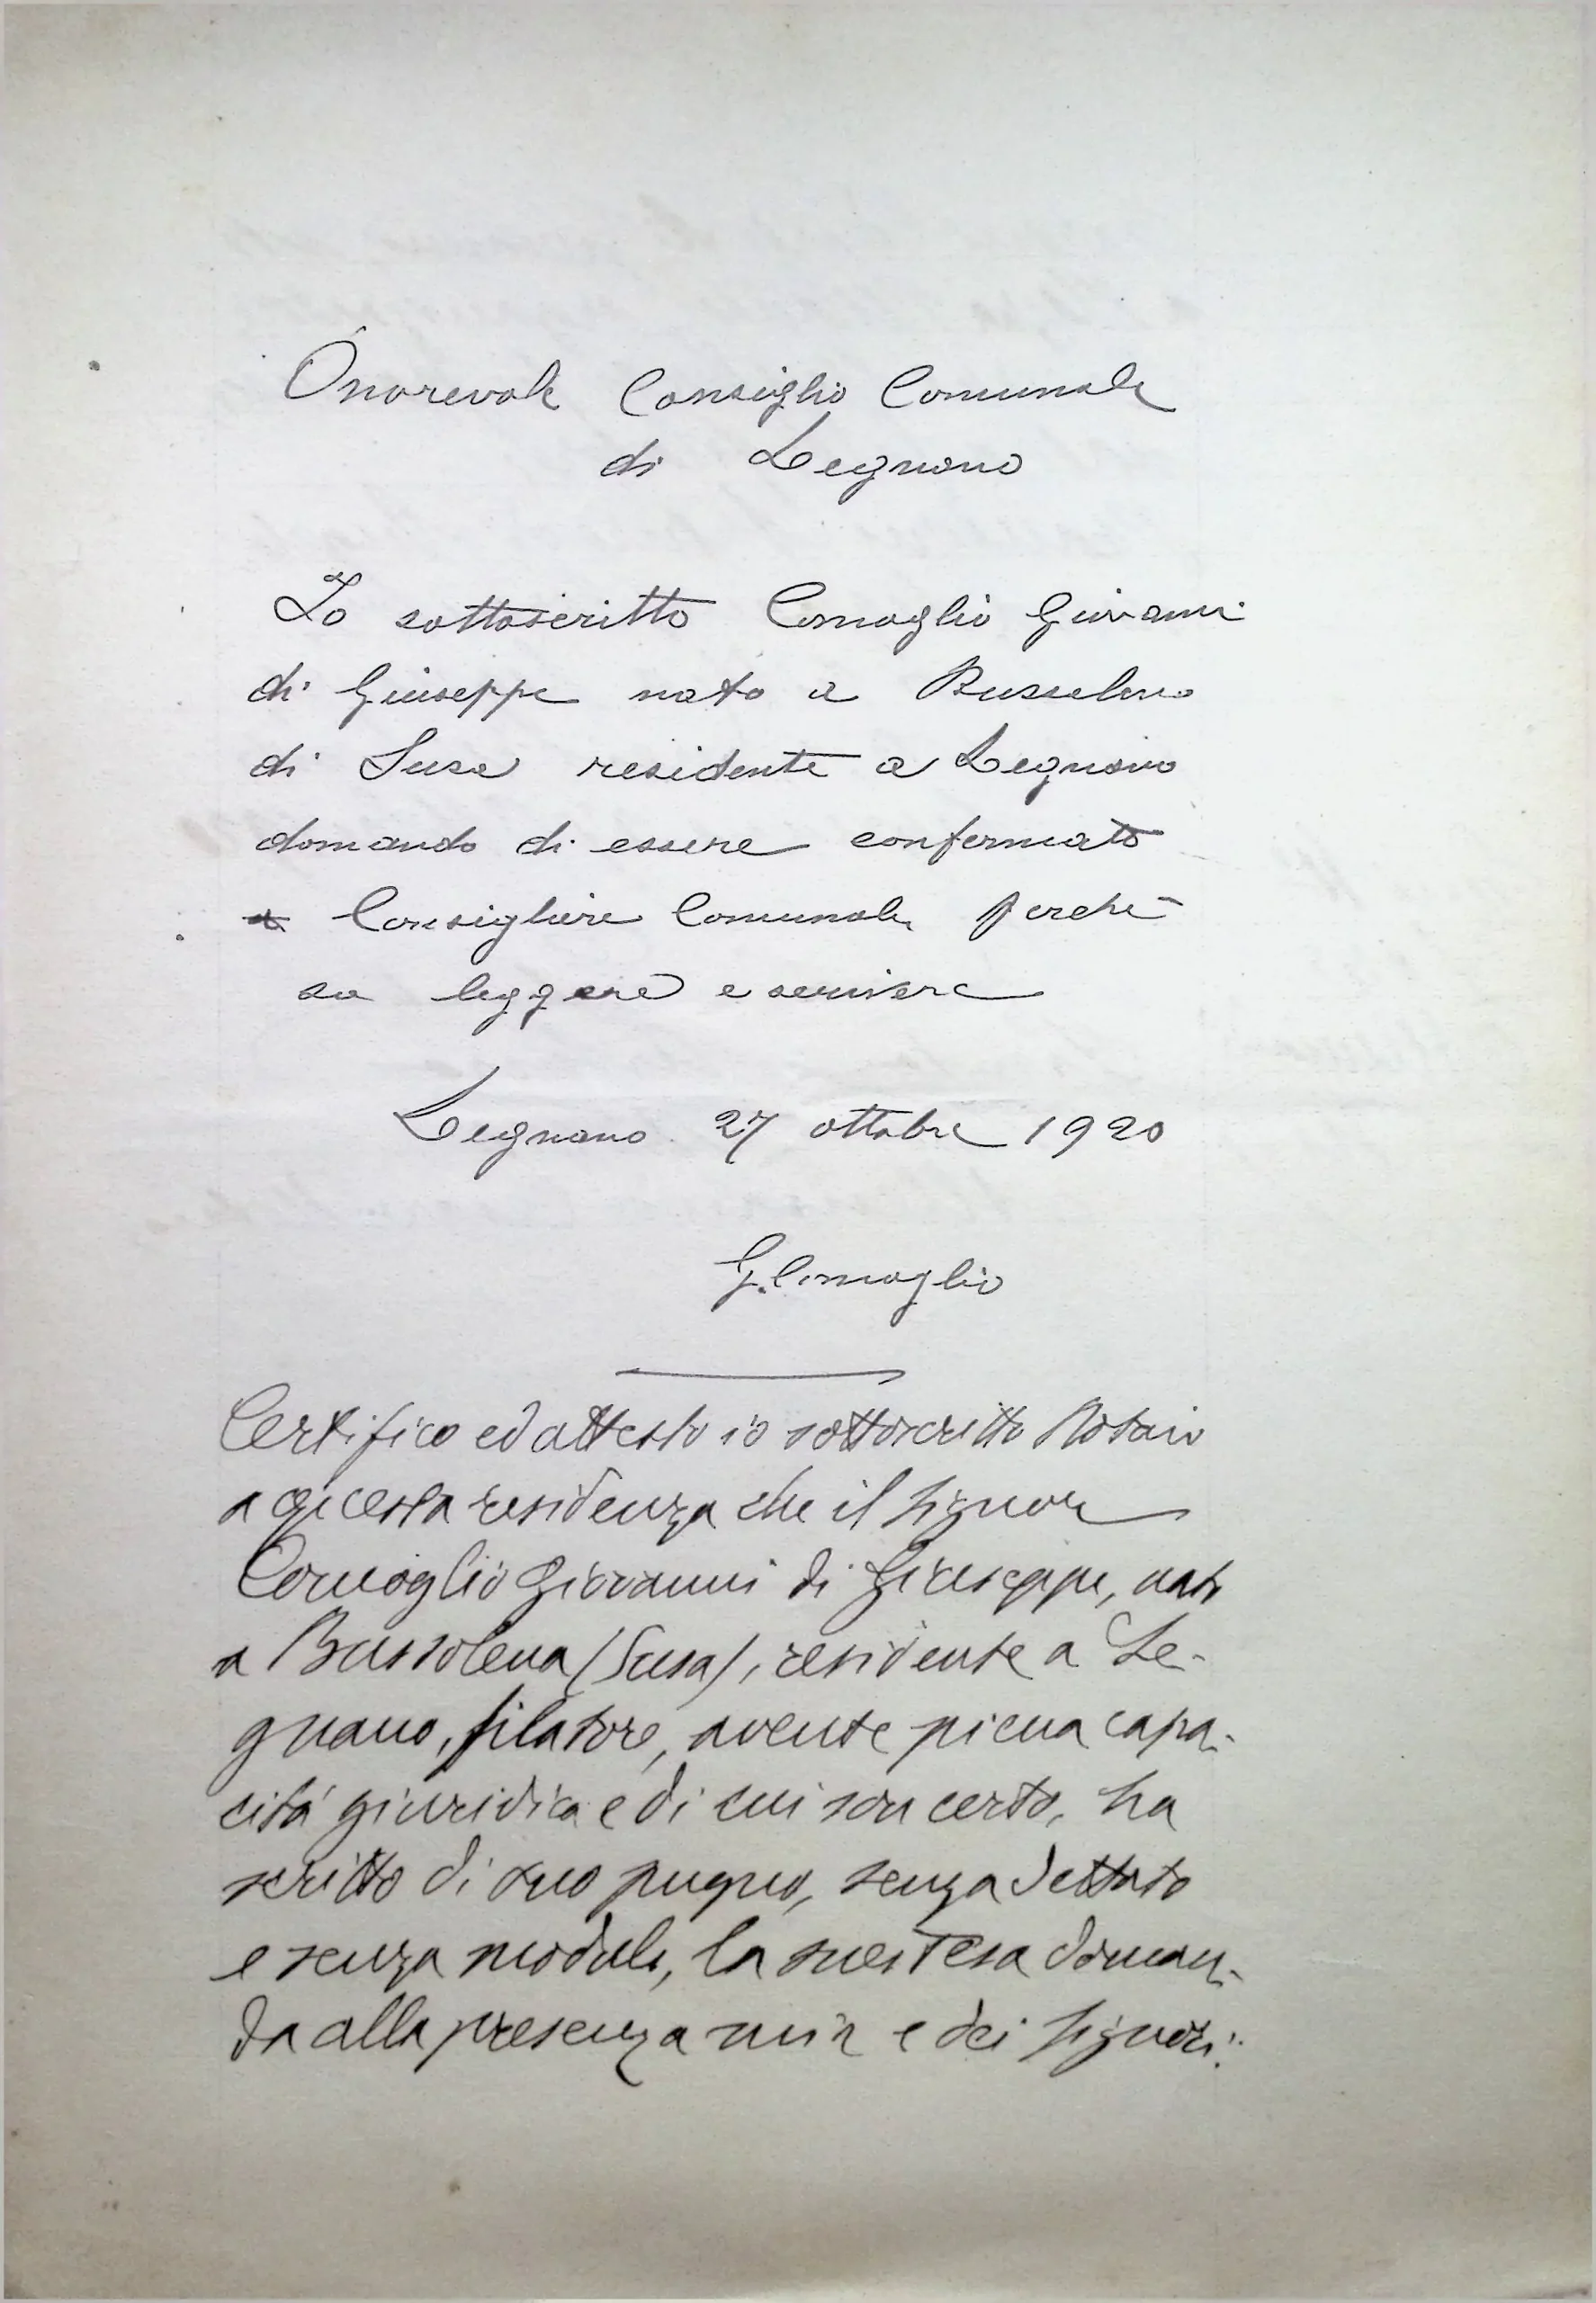 Onorevole Consiglio Comunale
di Legnano
Io sottoscritto Comoglio Giovanni
di Giuseppe nato a Bussoleno
di Susa residente a Legnano
domando di essere confermato
a Consigliere Comunale perchè
sa leggere e scrivere
Legnano 27 ottobre 1920
G. Comoglio
Certifico ed attesto io sottoscritto Notaio
a questa residenza che il signor
Comoglio Giovanni di Giuseppe, nato
a Bussolena (Susa), residente a Le-
gnano, filatore, avente piena capa-
cità giuridica e di cui son certo, ha
scritto di suo pugno, senza dettato
e senza modulo, la suestesa doman-
da alla presenza mia e dei signori: